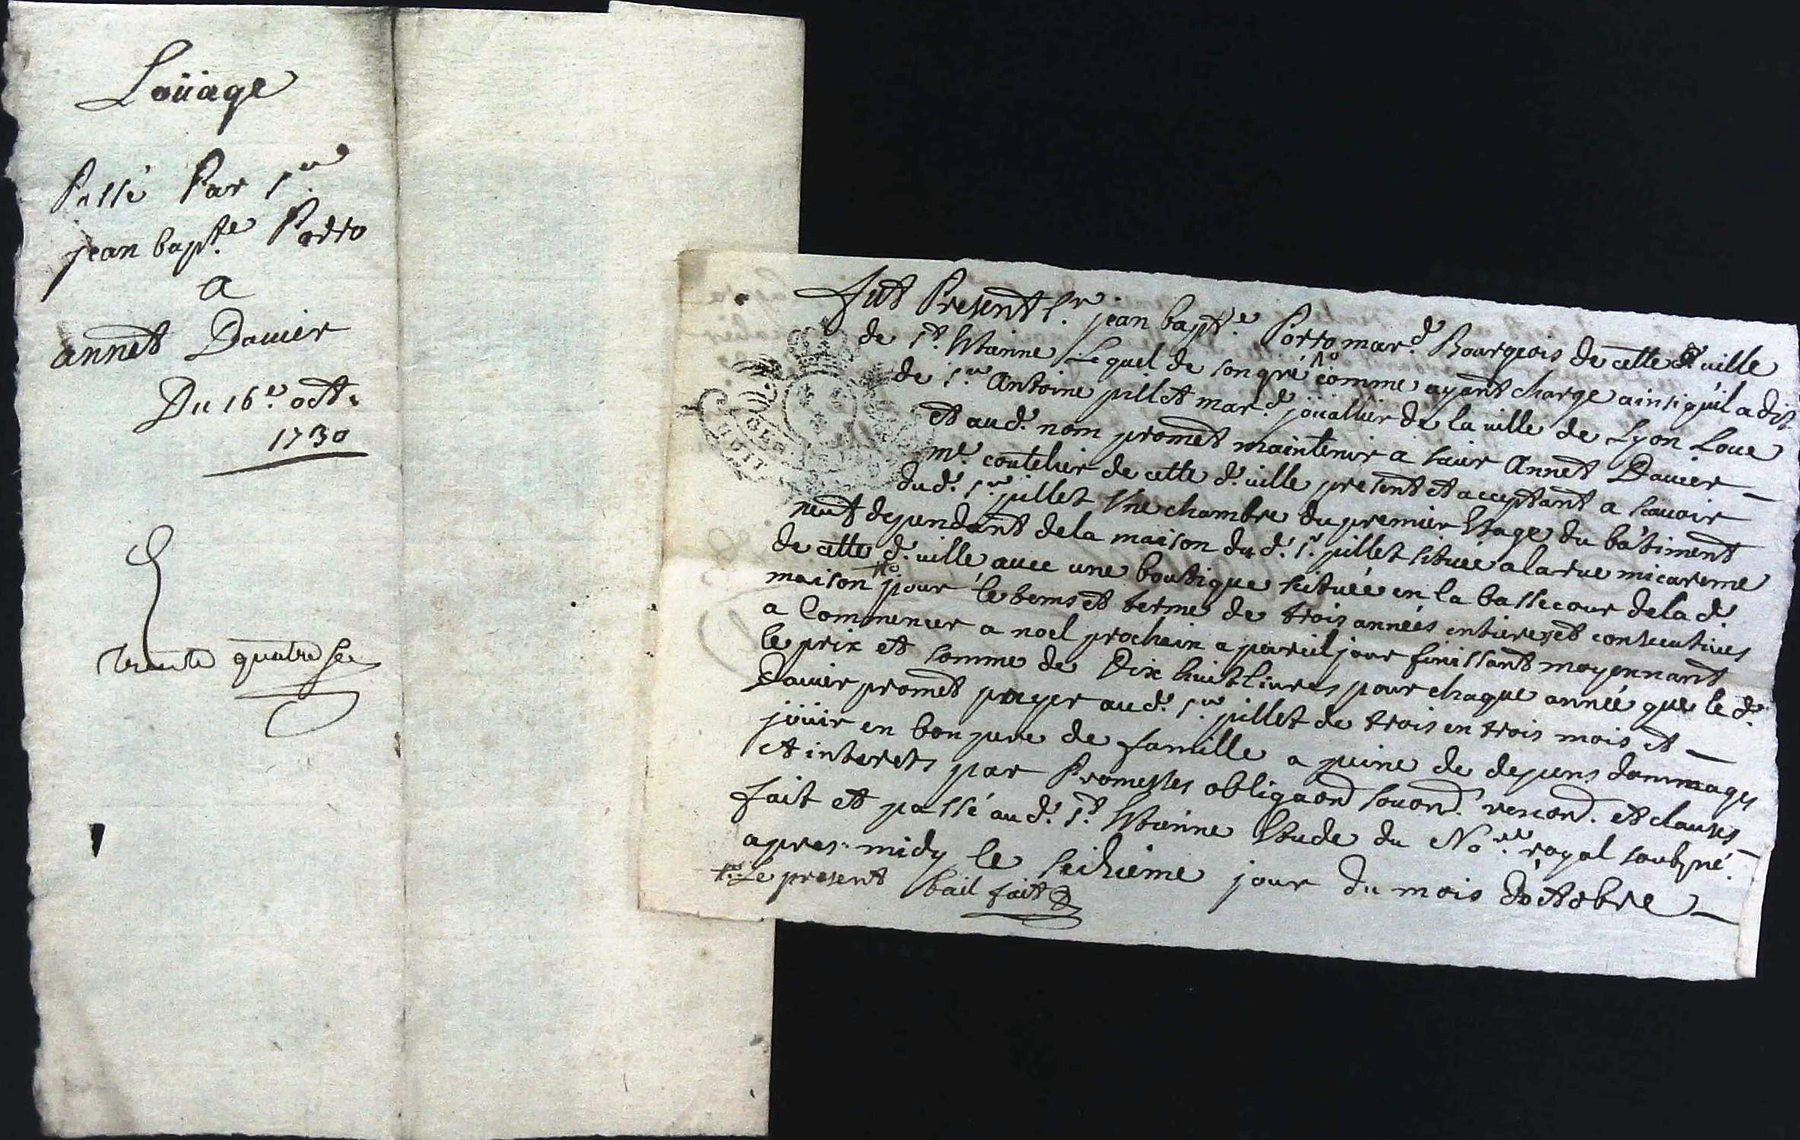 Loüage
Passé Par sr.
jean bapte. Porro
a
annet Dauier
Du 16e. oct.
1730
trente quatre se
fut Present sr. jean bapte. Porro mard. Bourgeois de cette d. uille
de st. Etienne Lequel de son gré comme ayant charge ainsi qu'il a dit
de sr. Antoine pillet mard. jouallier de la uille de Lyon Loue
et aud. nom promet maintenir a sieur Annet Dauier
me. coutelier de cette d. uille present et acceptant a scauoir
dud. sr. pillet Vne chambre du premier Etage du bâtiment
neuf dependant de la maison dud. sr. pillet située a la rue micareme
de cette d. uille auec une boutique située en la basse cour de la d.
maison pour le tems et terme de trois années entieres et consecutiues
a Commencer a noel prochain a pareil jour finissant moyennant
le prix et somme de Dix huit liures pour chaque année que le d.
Dauier promet payer aud. sr. pillet de trois en trois mois et
joüir en bon pere de famille a peine de depens dommages
et interets par Promesses obligaond. souond. renond. et clauses
fait et passé aud. st. Etienne Etude du Nore. royal soubsné.
apres-midy le seizieme jour du mois d'octobre
Le present bail fait